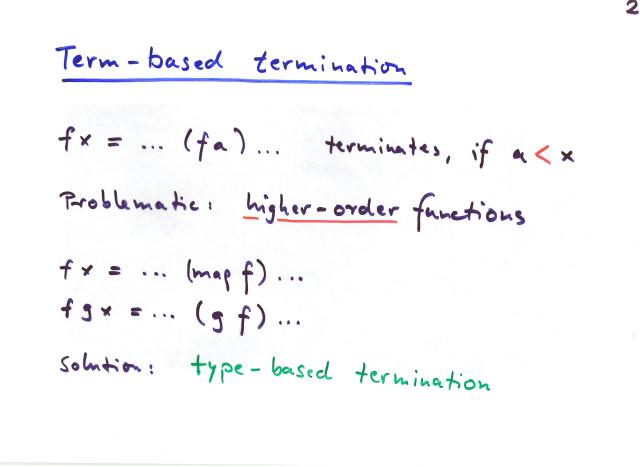 2
Term-based termination
f x = ... (f a) ... terminates, if a < x
Problematic: higher-order functions
f x = ... (map f) ...
f g x = ... (g f) ...
Solution: type-based termination